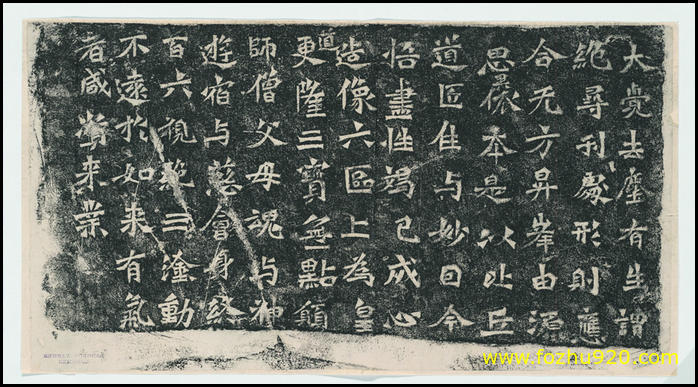 大覺去塵有生謂
絕尋刊處形則應
合无方昇峯由源
思果依本是以比丘
道匠住与妙日今
悟盡性竭己成心
造像六區上為皇
道更隆三寶無點願
師僧父母魂与神
遊宿与慈會身終
百六視絕三塗動
不遠於如來有氣
者咸賞来業
www.fozhu920.com